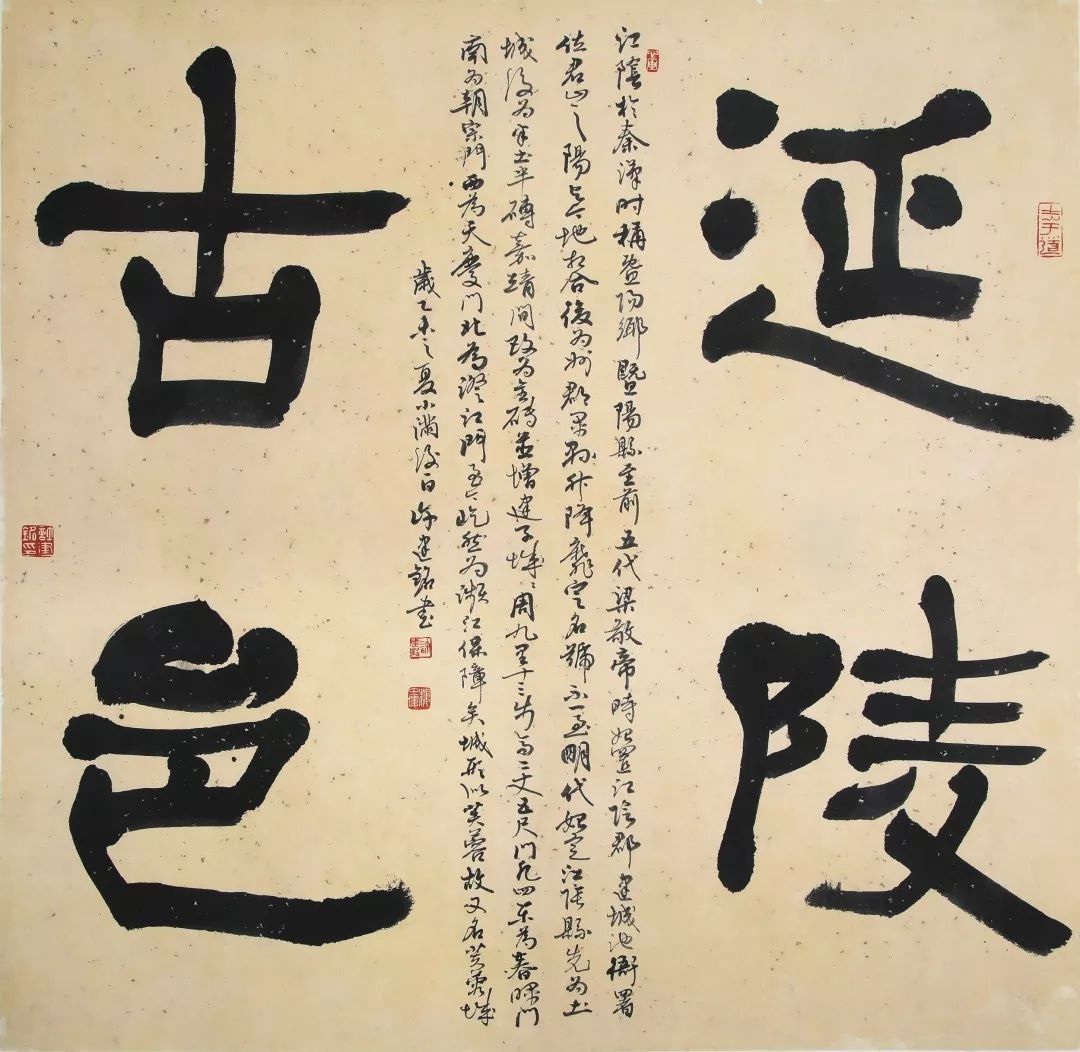 延陵
古邑
江陰於秦漢時稱暨陽鄉暨陽縣至前五代梁敬帝時始置江陰郡建城池衙署
位君山之陽與今地相合後為州郡軍升降靡定名號不一至明代始定江陰縣先為土
城後為半土半磚嘉靖間改為全磚並增建子城城周九里十三步高二丈五尺門凡四東為春暉門
南為朝宗門西為天慶門北為澄江門至今屹然為瀕江保障矣城形似芙蓉故又名芙蓉城
歲乙未之夏小滿後一日許建銘書
志于道